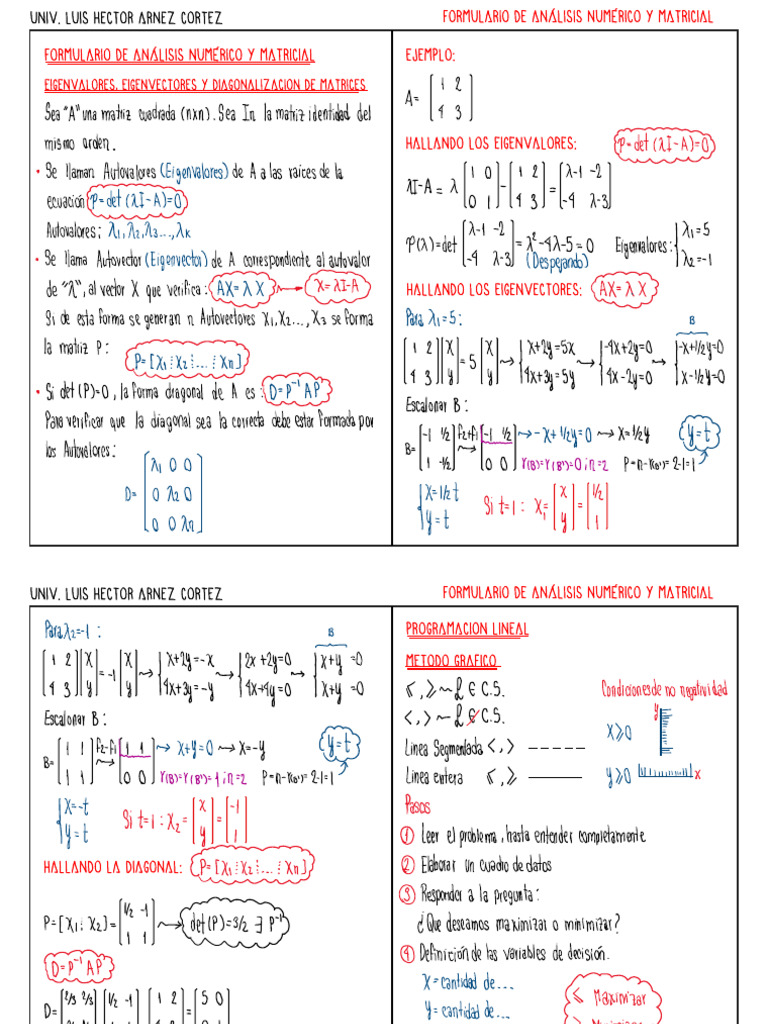 UNIV. LUIS HECTOR ARNEZ CORTEZ
FORMULARIO DE ANÁLISIS NUMÉRICO Y MATRICIAL
FORMULARIO DE ANÁLISIS NUMÉRICO Y MATRICIAL
EIGENVALORES, EIGENVECTORES Y DIAGONALIZACION DE MATRICES
Sea "A" una matriz cuadrada (nxn). Sea In la matriz identidad del
mismo orden.
• Se llaman Autovalores (Eigenvalores) de A a las raíces de la
ecuación P=det (λI-A)=0
Autovalores; λ1, λ2, λ3..., λK
• Se llama Autovector (Eigenvector) de A correspondiente al autovalor
de "λ", al vector X que verifica: AX=λ X → X=λI-A
Si de esta forma se generan n Autovectores X1, X2..., X3 se forma
la matriz P:
P=[X1⋮X2⋮...⋮Xn]
• Si det (P)=0, la forma diagonal de A es: D=P⁻¹ AP
Para verificar que la diagonal sea la correcta debe estar formada por
los Autovalores:
λ1 0 0
D= 0 λ2 0
0 0 λn
EJEMPLO:
A= [1 2
4 3]
HALLANDO LOS EIGENVALORES: P=det (λI-A)=0
λI-A = λ [1 0; 0 1] - [1 2; 4 3] = [λ-1 -2; -4 λ-3]
P(λ)=det [λ-1 -2; -4 λ-3] = λ²-4λ-5=0 Eigenvalores: {λ1=5; λ2=-1
(Despejando)
HALLANDO LOS EIGENVECTORES: AX=λ X
Para λ1=5:
B
[1 2; 4 3] [x; y] = 5 [x; y] → {x+2y=5x; 4x+3y=5y → {-4x+2y=0; 4x-2y=0 → {-x+1/2y=0; x-1/2y=0
Escalonar B:
B= [-1 1/2; 1 -1/2] f2+f1 → [-1 1/2; 0 0] → -x+1/2y=0 → x=1/2y
y=t
r(B)=r(B')=0 ; n=2 P=n-r(B')=2-1=1
{x=1/2 t; y=t Si t=1: X1 = [x; y] = [1/2; 1]
UNIV. LUIS HECTOR ARNEZ CORTEZ
FORMULARIO DE ANÁLISIS NUMÉRICO Y MATRICIAL
Para λ2=-1:
B
[1 2; 4 3] [x; y] = -1 [x; y] → {x+2y=-x; 4x+3y=-y → {2x+2y=0; 4x+4y=0 → {x+y=0; x+y=0
Escalonar B:
B= [1 1; 1 1] f2-f1 → [1 1; 0 0] → x+y=0 → x=-y
y=t
r(B)=r(B')=1 ; n=2 P=n-r(B')=2-1=1
{x=-t; y=t Si t=1: X2 = [x; y] = [-1; 1]
HALLANDO LA DIAGONAL: P=[X1⋮X2⋮...⋮Xn]
P=[X1⋮X2]= [1/2 -1; 1 1] → det(P)=3/2 ∃ P⁻¹
D=P⁻¹ AP
D= [2/3 2/3 [1/2 -1 [1 2 = [5 0
PROGRAMACION LINEAL
METODO GRAFICO
≤, ≥ ~ L ∈ C.S.
<, > ~ L ∉ C.S.
Linea Segmentada <, > ------
Linea entera ≤, ≥ ______
Condiciones de no negatividad
x≥0 y
y≥0 x
Pasos
1 Leer el problema, hasta entender completamente
2 Elaborar un cuadro de datos
3 Responder a la pregunta:
¿Que deseamos maximizar o minimizar?
4 Definición de las variables de decisión.
x=cantidad de...
y=cantidad de...
≤ Maximizar